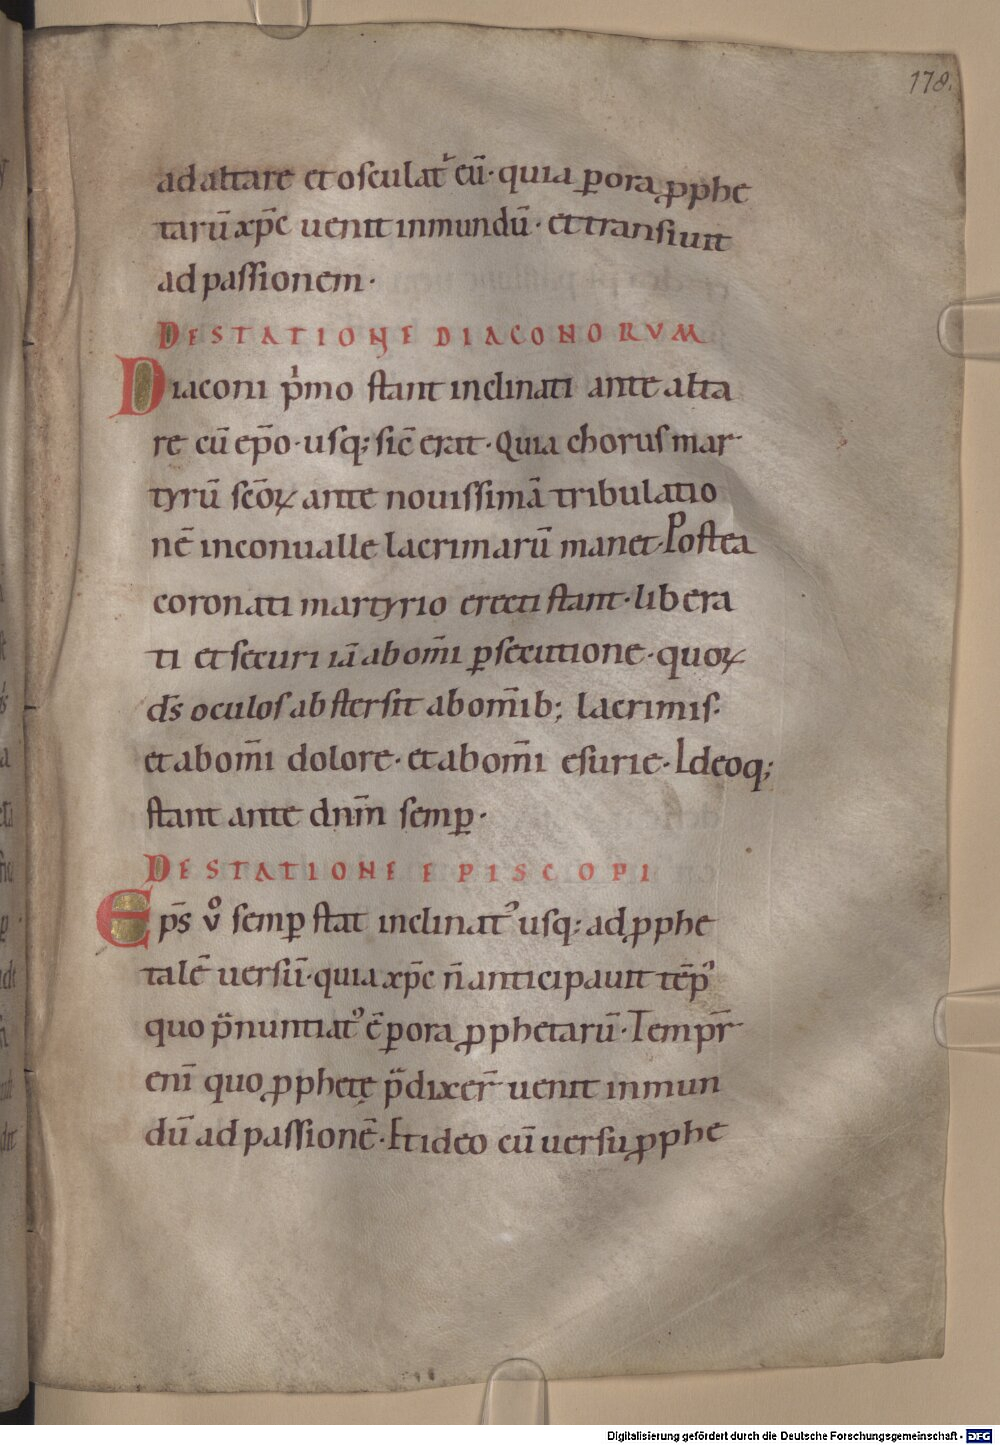 178.
ad altare et osculat᷑ eū · quia ꝑ ora ꝓphe
tarū xp̄c uenit in mundū · et transiuit
ad passionem ·
DE STATIONE DIACONORVM
Diaconi p̍mo stant inclinati ante alta
re cū ep̄o · usq; sic̄ erat · Quia chorus mar
tyrū sc̄oꝝ ante nouissimā tribulatio
nē in conualle lacrimarū manet · Postea
coronati martyrio erecti stant · libera
ti et securi iā ab om̄i ꝑsecutione · quoꝝ
ds̄ oculos abstersit ab om̄ib; lacrimis ·
et ab om̄i dolore · et ab om̄i esurie · Ideoq;
stant ante dn̄m semꝑ ·
DE STATIONE EPISCOPI
Ep̄s vͦ semꝑ stat inclinatꝰ usq; ad ꝓphe
talē uersū · quia xp̄c n̄ anticipauit tēpꝰ
quo p̄nuntiatꝰ ē ꝑ ora ꝓphetarū · Tempr̄
enī quo ꝓphetę p̄dixer̄ uenit in mun
dū ad passionē · Et ideo cū uersu ꝓphe
Digitalisierung gefördert durch die Deutsche Forschungsgemeinschaft - DFG